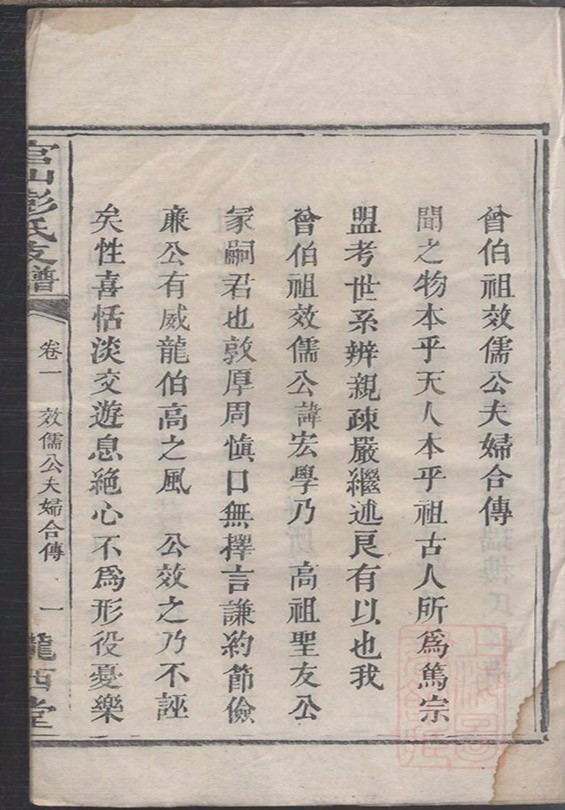 曾伯祖效儒公夫婦合傳
聞之物本乎天人本乎祖古人所為篤宗
盟考世系辨親疎嚴繼述良有以也我
曾伯祖效儒公諱宏學乃 高祖聖友公
冢嗣君也敦厚周慎口無擇言謙約節儉
亷公有威龍伯高之風 公效之乃不誣
矣性喜恬淡交遊息絶心不為形役憂樂
官山彭氏支譜
卷一 效儒公夫婦合傳 一
隴西堂